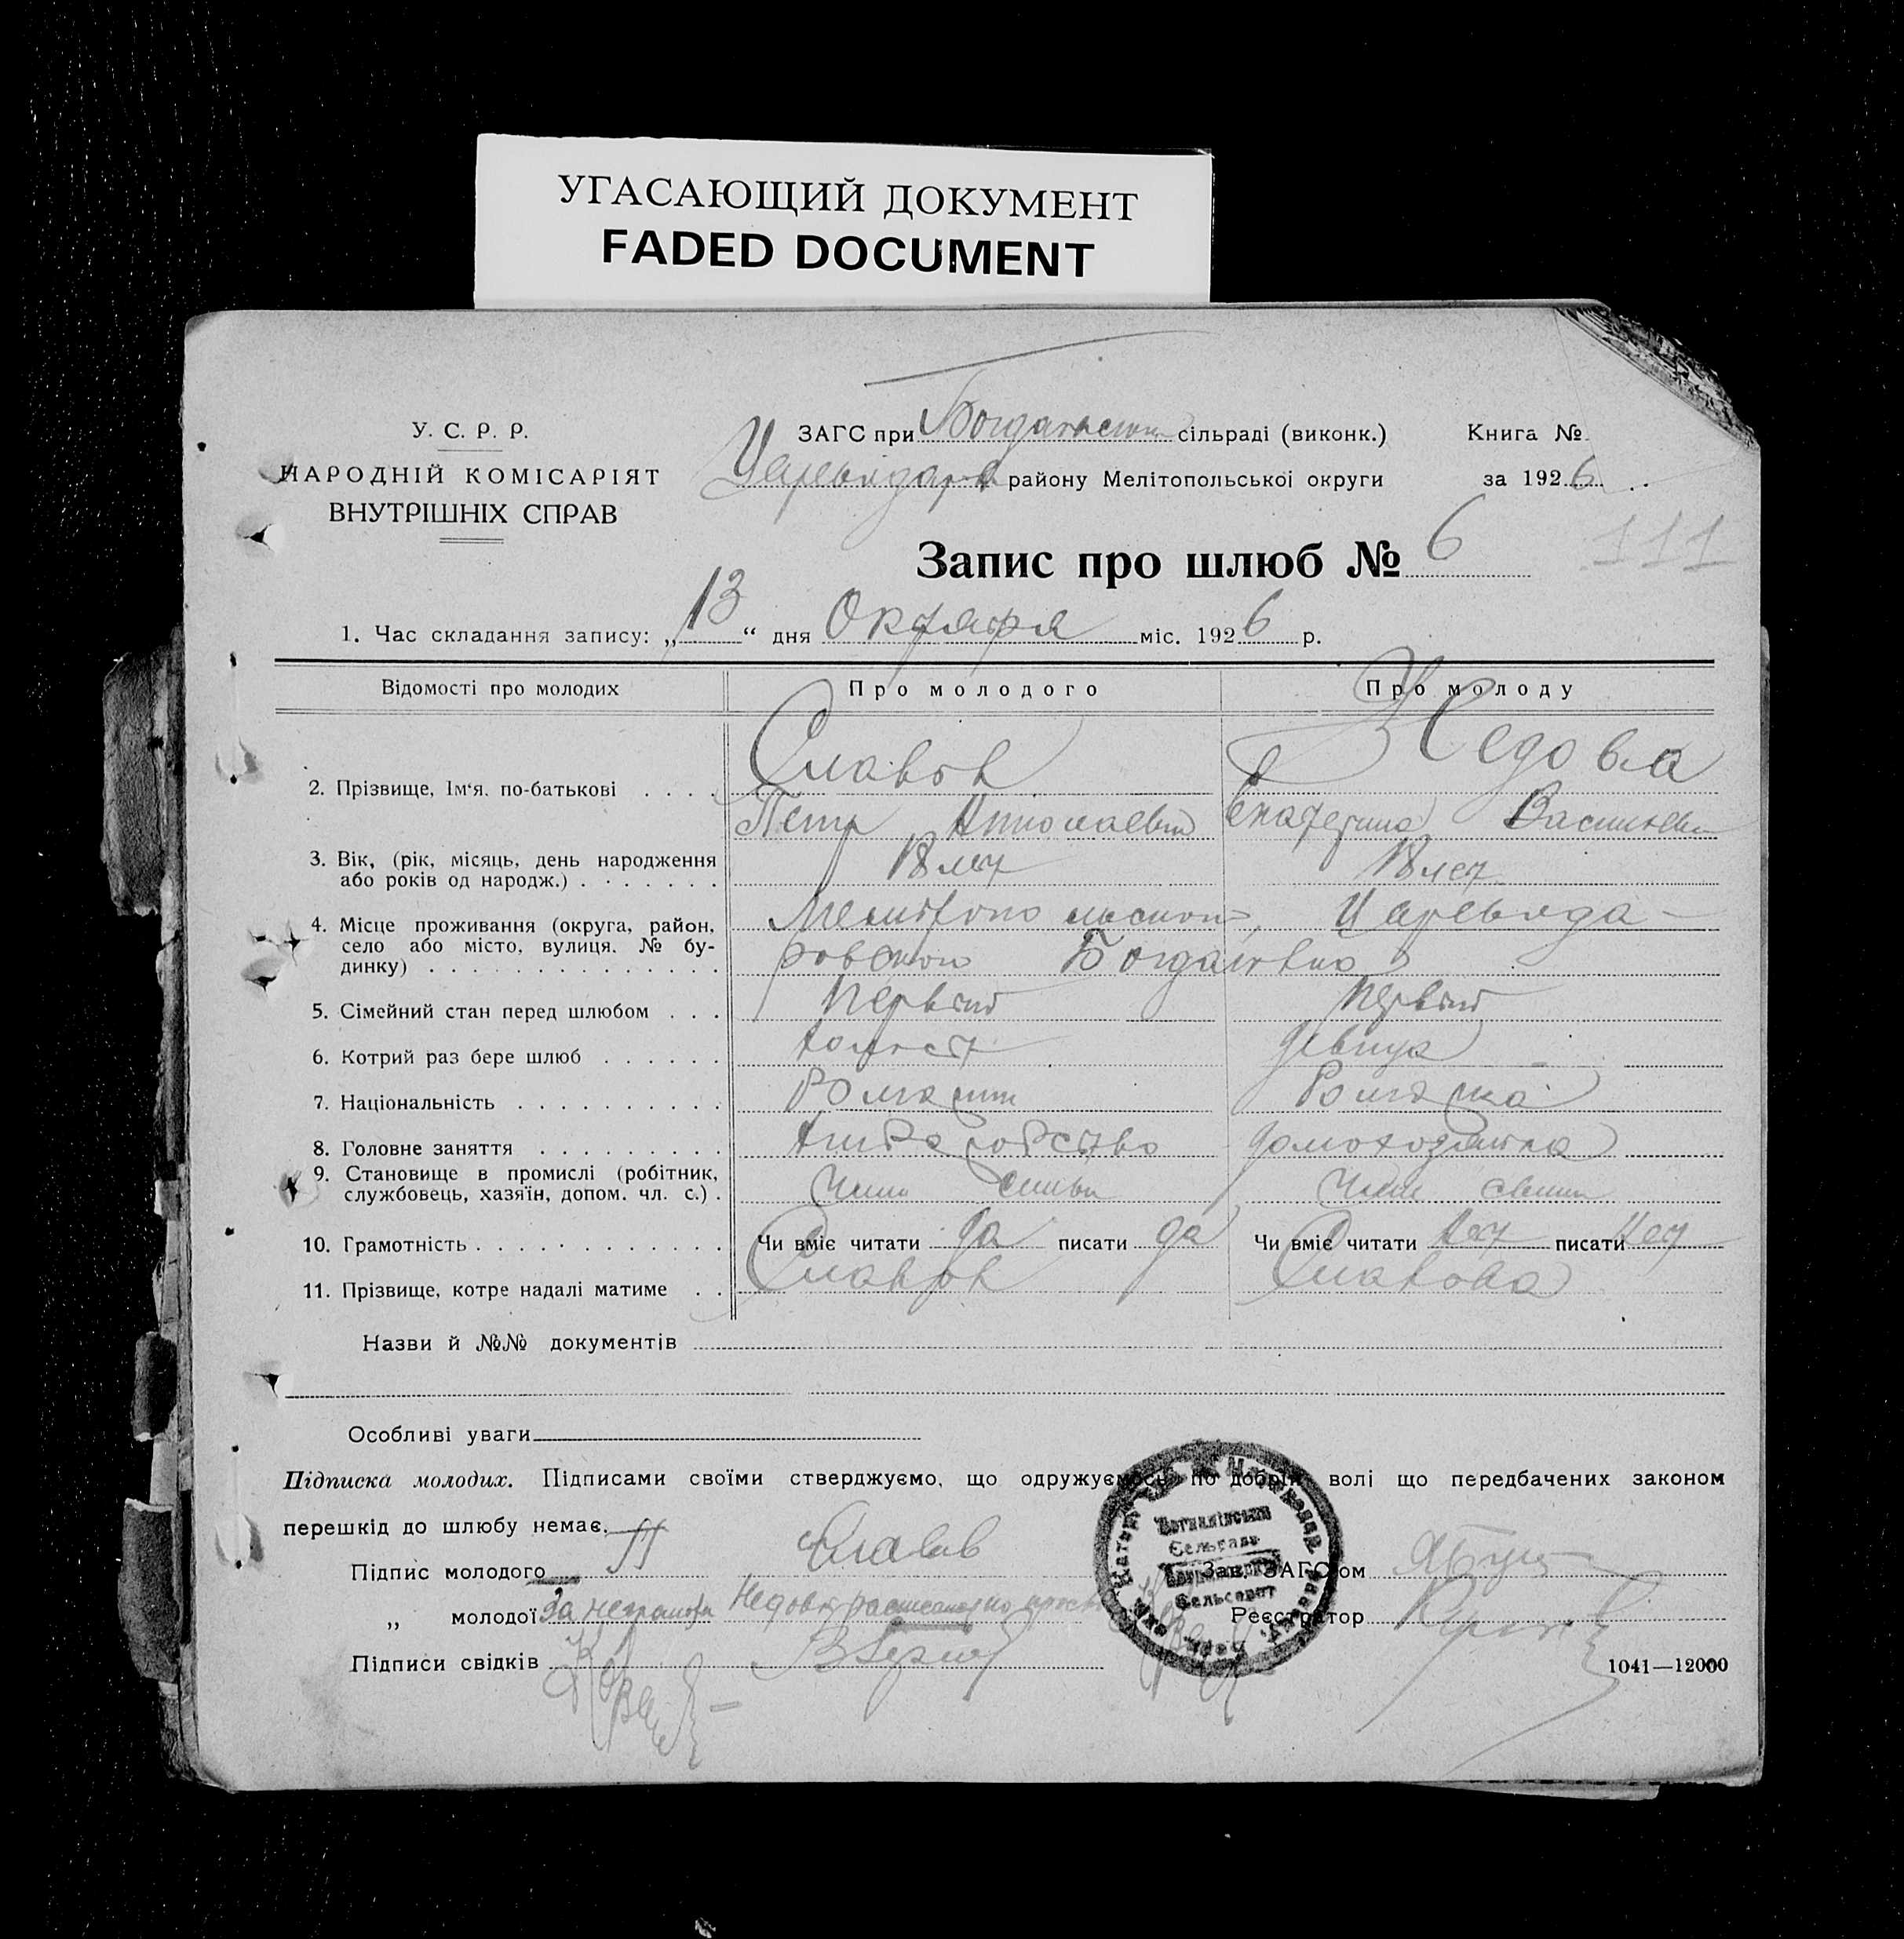 УГАСАЮЩИЙ ДОКУМЕНТ
FADED DOCUMENT
У. С. Р. Р.
НАРОДНІЙ КОМІСАРІЯТ
ВНУТРІШНІХ СПРАВ
ЗАГС при сільраді (виконк.)
району Мелітопольської округи
Книга №
за 1926
111
Запис про шлюб № 6
1. Час складання запису: „13“ дня Октября міс. 1926 р.
Відомості про молодих Про молодого Про молоду
2. Прізвище, Ім‘я, по-батькові
Славов Недова
Петр Николаевич Екатерина Васильевн
3. Вік, (рік, місяць, день народження
або років од народж.) 18 лет 18 лет
4. Місце проживання (округа, район,
село або місто, вулиця. № бу-
динку)
Царевода-
ровского Богдановка
5. Сімейний стан перед шлюбом Первый Первый
6. Котрий раз бере шлюб холост девица
7. Національність
8. Головне заняття хлебороbство домохозяйка
9. Становище в промислі (робітник,
службовець, хазяїн, допом. чл. с.) Член семьи Член семьи
10. Грамотність Чи вміє читати да писати да Чи вміє читати нет писати нет
11. Прізвище, котре надалі матиме Славов Славова
Назви й №№ документів
Особливі уваги
Підписка молодих. Підписами своїми стверджуємо, що одружуємось по добрій волі що передбачених законом
перешкід до шлюбу немає.
Підпис молодого Славов
Зав. ЗАГС‘ом
„ молодої за неграмотн Недову
Реєстратор
Підписи свідків
1041—12000